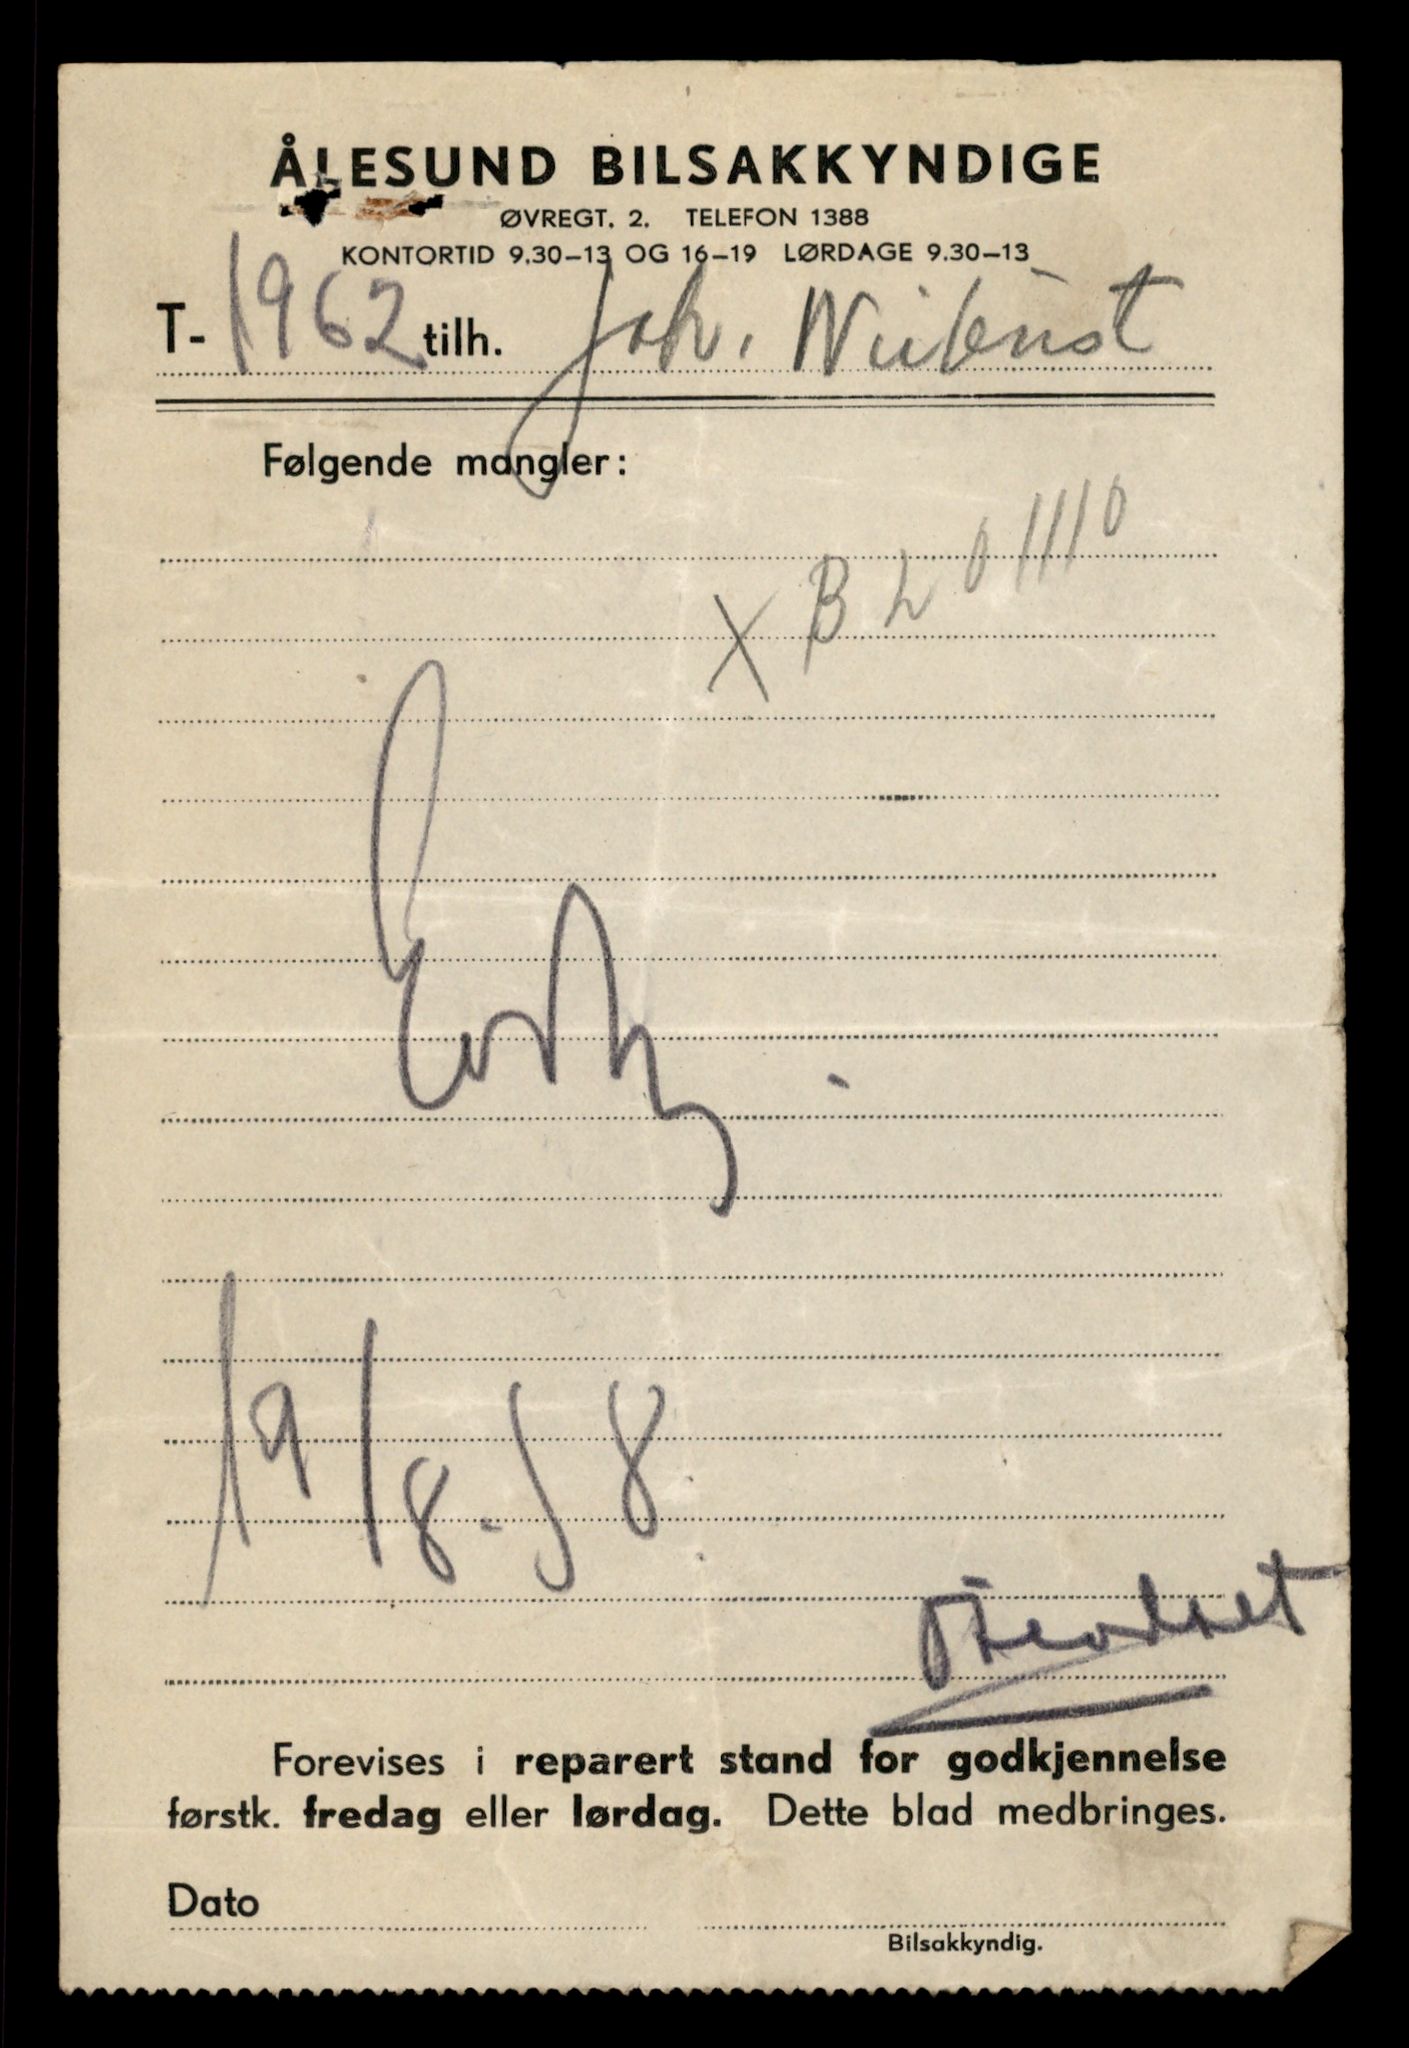 ÅLESUND BILSAKKYNDIGE
ØVREGT. 2. TELEFON 1388
KONTORTID 9.30–13 OG 16–19 LØRDAGE 9.30–13
T- 1962 tilh. Joh.
Følgende mangler:
X B L 01110
19/8-58
Forevises i reparert stand for godkjennelse
førstk. fredag eller lørdag. Dette blad medbringes.
Dato
Bilsakkyndig.